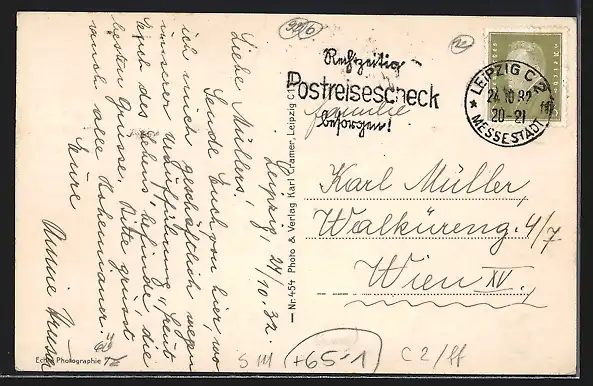 Leipzig, 24/10.32.
Liebe Müllers,
Sende Euch von hier, wo
ich mich geschäftlich wegen
unserer Uraufführung "heut
Spiel des Lebens" befinde, die
besten Grüsse. Bitte grüsst
auch alle
Eure
Echte Photographie
— Nr. 454 Photo & Verlag Karl Cramer Leipzig C1
Rechtzeitig
Postreisescheck
besorgen!
LEIPZIG C2
24.10.32
20-21
MESSESTADT
Familie
Karl Müller,
Walküreng. 4/7
Wien XV.
+65-1
C2/